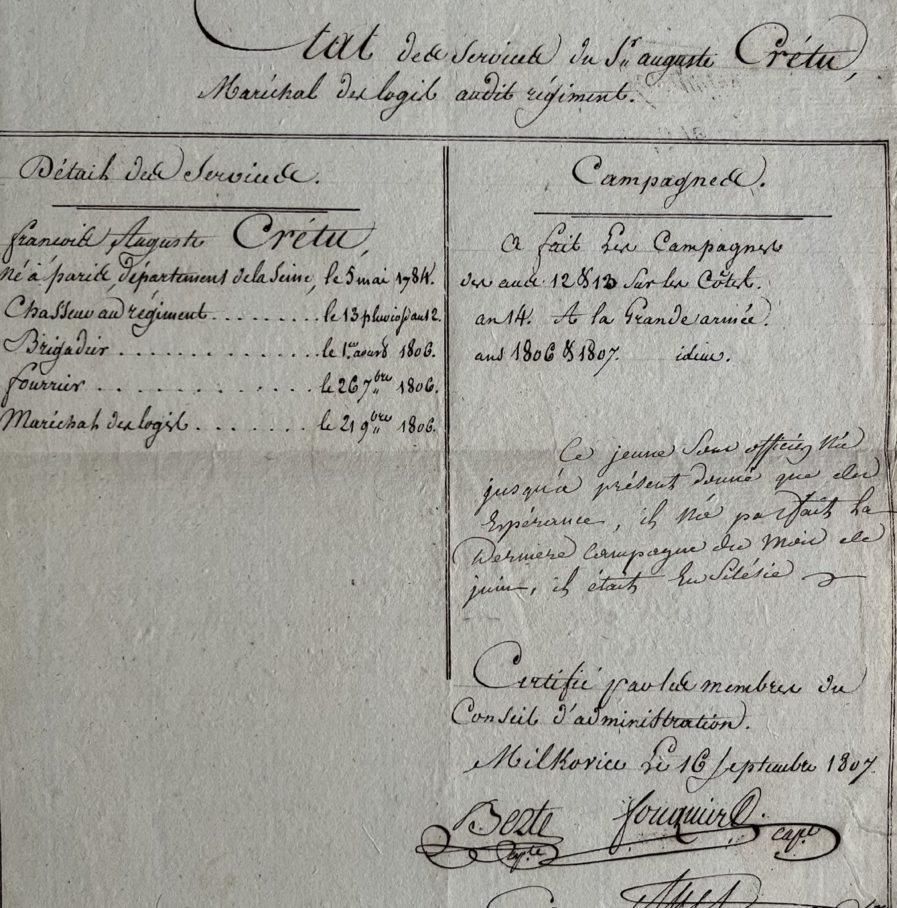 Etat des services du Sr. auguste Crétu,
Maréchal des logis audit régiment.
Détail des Services.
françois Auguste Crétu,
né à paris, département de la Seine, le 5 mai 1784.
Chasseur au régiment........ le 13 pluviose an 12.
Brigadier................ le 1er. aout 1806.
fourrier................ le 26 7bre 1806.
Maréchal des logis........ le 21 9bre 1806.
Campagnes.
a fait Les Campagnes
des ans 12 & 13 Sur les Côtes.
an 14. A la Grande armée.
ans 1806 & 1807. idem.
Ce jeune Sous officier N'a
jusqu'a présent donné que des
Espérance, il N'a pas fait La
Derniere Campagne du Mois de
juin, il était En Silésie
Certifié par les membres du
Conseil d'administration.
Milkovice Le 16 Septembre 1807.
Bezte fouquier
cap.e